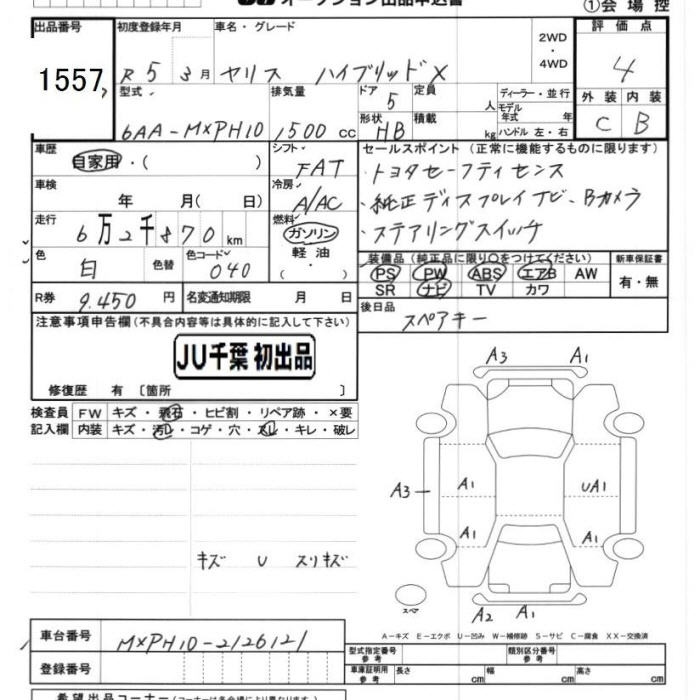 オークション出品申込書
①会場控
出品番号 初度登録年月 車名・グレード 2WD ・ 4WD 評価点
1557 R5 3月 ヤリス ハイブリッドX 4
型式 排気量 ドア 5 定員 人 ディーラー・並行 外装 内装
6AA-MXPH10 1500 cc 形状 HB 積載 kg モデル年式 年 ハンドル 左・右 C B
車歴 自家用・( ) シフト FAT セールスポイント (正常に機能するものに限ります)
・トヨタセーフティセンス
車検 年 月( 日) 冷房 A/AC ・純正ディスプレイナビ・Bカメラ
走行 6万2千870km 燃料 ガソリン 軽油 ・( ) ・ステアリングスイッチ
色 白 色替 色コード 040 装備品(純正品に限り○をつけてください) 新車保証書
PS PW ABS エアB AW 有・無
SR ナビ TV カワ
R券 9.450円 名変通知期限 月 日 後日品
スペアキー
注意事項申告欄(不具合内容等は具体的に記入して下さい)
JU千葉 初出品
修復歴 有 [箇所 ]
検査員 FW キズ・飛石・ヒビ割・リペア跡・×要
記入欄 内装 キズ・汚レ・コゲ・穴・スレ・キレ・破レ
A3 A1
A3 A1 UA1
A1 A1
キズ U スリキズ
スペア
A2 A1
A-キズ E-エクボ U-凹み W-補修跡 S-サビ C-腐食 XX-交換済
車台番号 MXPH10-2126121 型式指定番号 参考 類別区分番号 参考
登録番号 車庫証明用 参考 長さ cm 幅 cm 高さ cm
希望出品コーナー